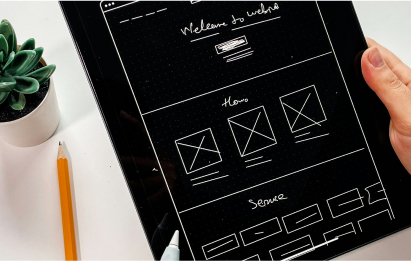 Welcome to website
Home
Service